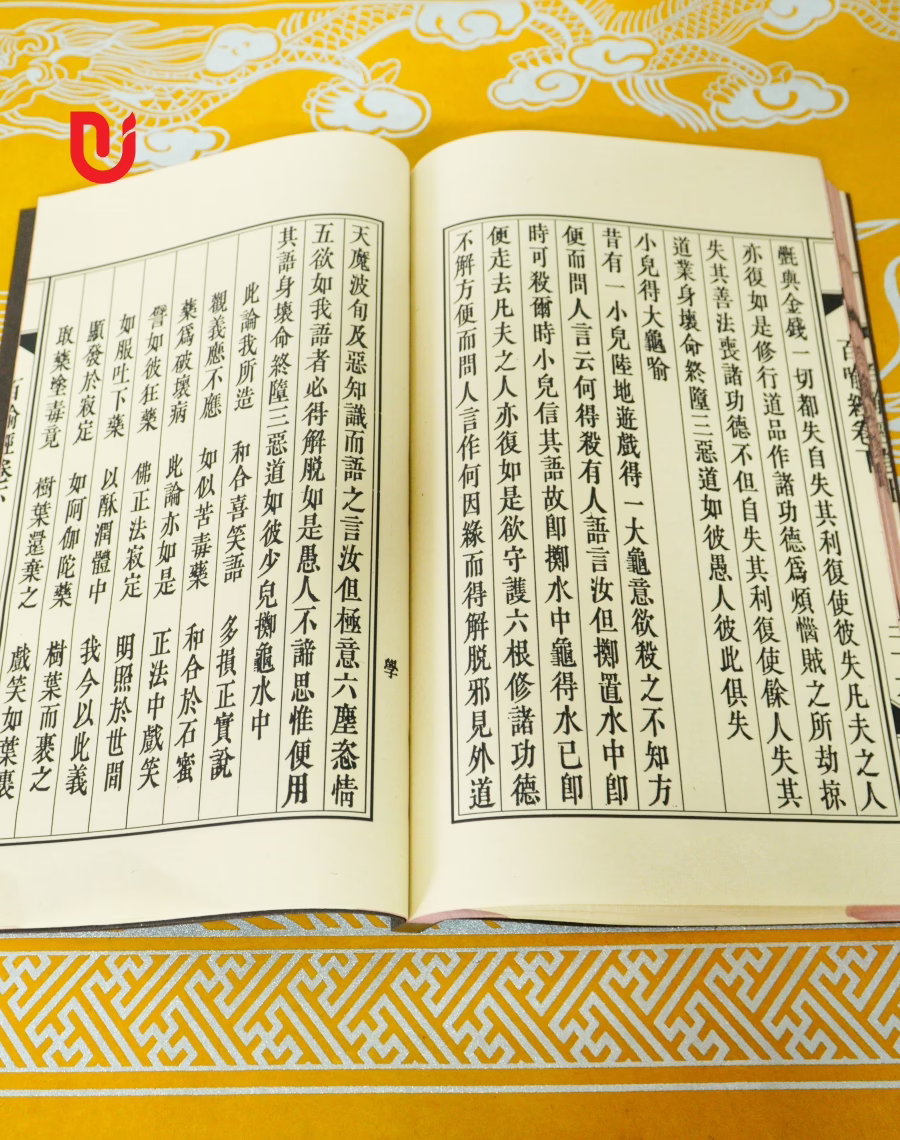 氎與金錢一切都失自失其利復使彼失凡夫之人
亦復如是修行道品作諸功德爲煩惱賊之所劫掠
失其善法喪諸功德不但自失其利復使餘人失其
道業身壞命終墮三惡道如彼愚人彼此俱失
小兒得大龜喻
昔有一小兒陸地遊戲得一大龜意欲殺之不知方
便而問人言云何得殺有人語言汝但擲置水中卽
時可殺爾時小兒信其語故卽擲水中龜得水已卽
便走去凡夫之人亦復如是欲守護六根修諸功德
不解方便而問人言作何因緣而得解脱邪見外道
天魔波旬及惡知識而語之言汝但極意六塵恣情
五欲如我語者必得解脱如是愚人不諦思惟便用
其語身壞命終墮三惡道如彼少兒擲龜水中
此論我所造 和合喜笑語 多損正實說
觀義應不應 如似苦毒藥 和合於石蜜
藥爲破壞病 此論亦如是 正法中戲笑
譬如彼狂藥 佛正法寂定 明照於世間
如服吐下藥 以酥潤體中 我今以此義
顯發於寂定 如阿伽陀藥 樹葉而裹之
取藥塗毒竟 樹葉還棄之 戲笑如葉裹
學